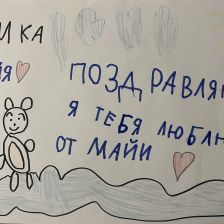 ИКА
Я
ПОЗДРАВЛЯ
Я ТЕБЯ ЛЮБЛЮ
ОТ МАЙИ